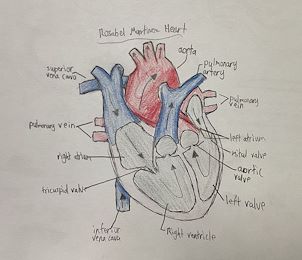 Rosabel Martinez Heart
aorta
pulmonary
artery
superior
vena cava
pulmonary
vein
pulmonary vein
left atrium
right atrium
mitral valve
aortic
valve
tricuspid valve
left valve
Right ventricle
inferior
vena cava